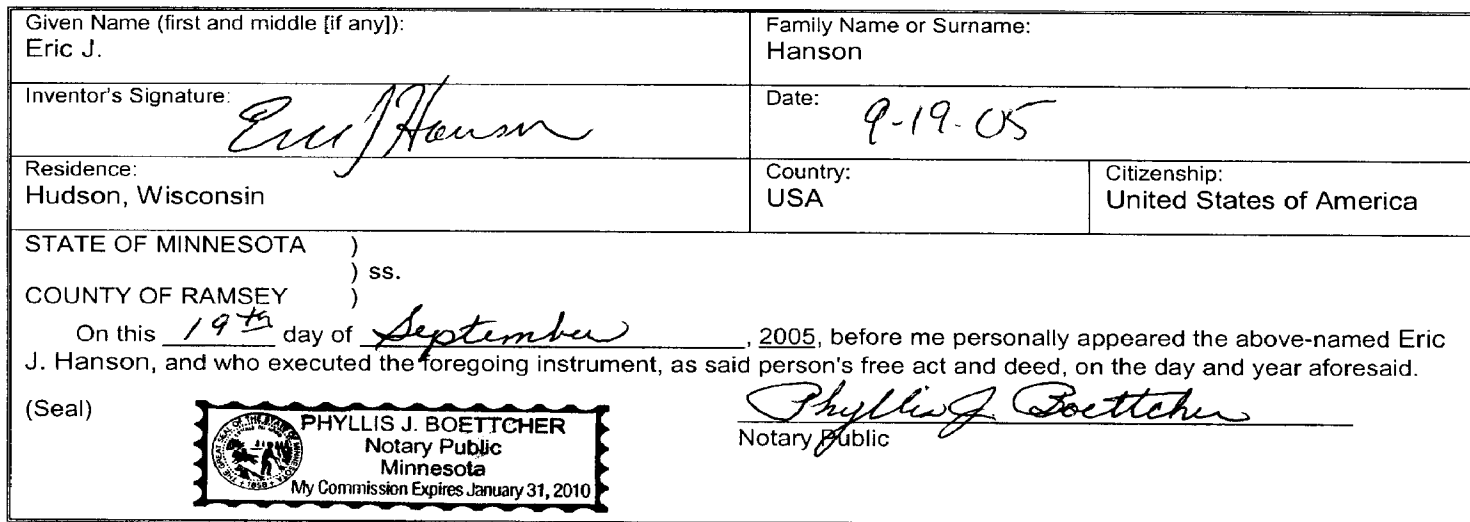 Given Name (first and middle [if any]):
Eric J.
Family Name or Surname:
Hanson
Inventor's Signature:
Eric J Hanson
Date:
9-19-05
Residence:
Hudson, Wisconsin
Country:
USA
Citizenship:
United States of America
STATE OF MINNESOTA )
) ss.
COUNTY OF RAMSEY )
On this 19th day of September, 2005, before me personally appeared the above-named Eric
J. Hanson, and who executed the foregoing instrument, as said person's free act and deed, on the day and year aforesaid.
(Seal)
THE GREAT SEAL OF THE STATE OF MINNESOTA
1858
PHYLLIS J. BOETTCHER
Notary Public
Minnesota
My Commission Expires January 31, 2010
Phyllis J. Boettcher
Notary Public